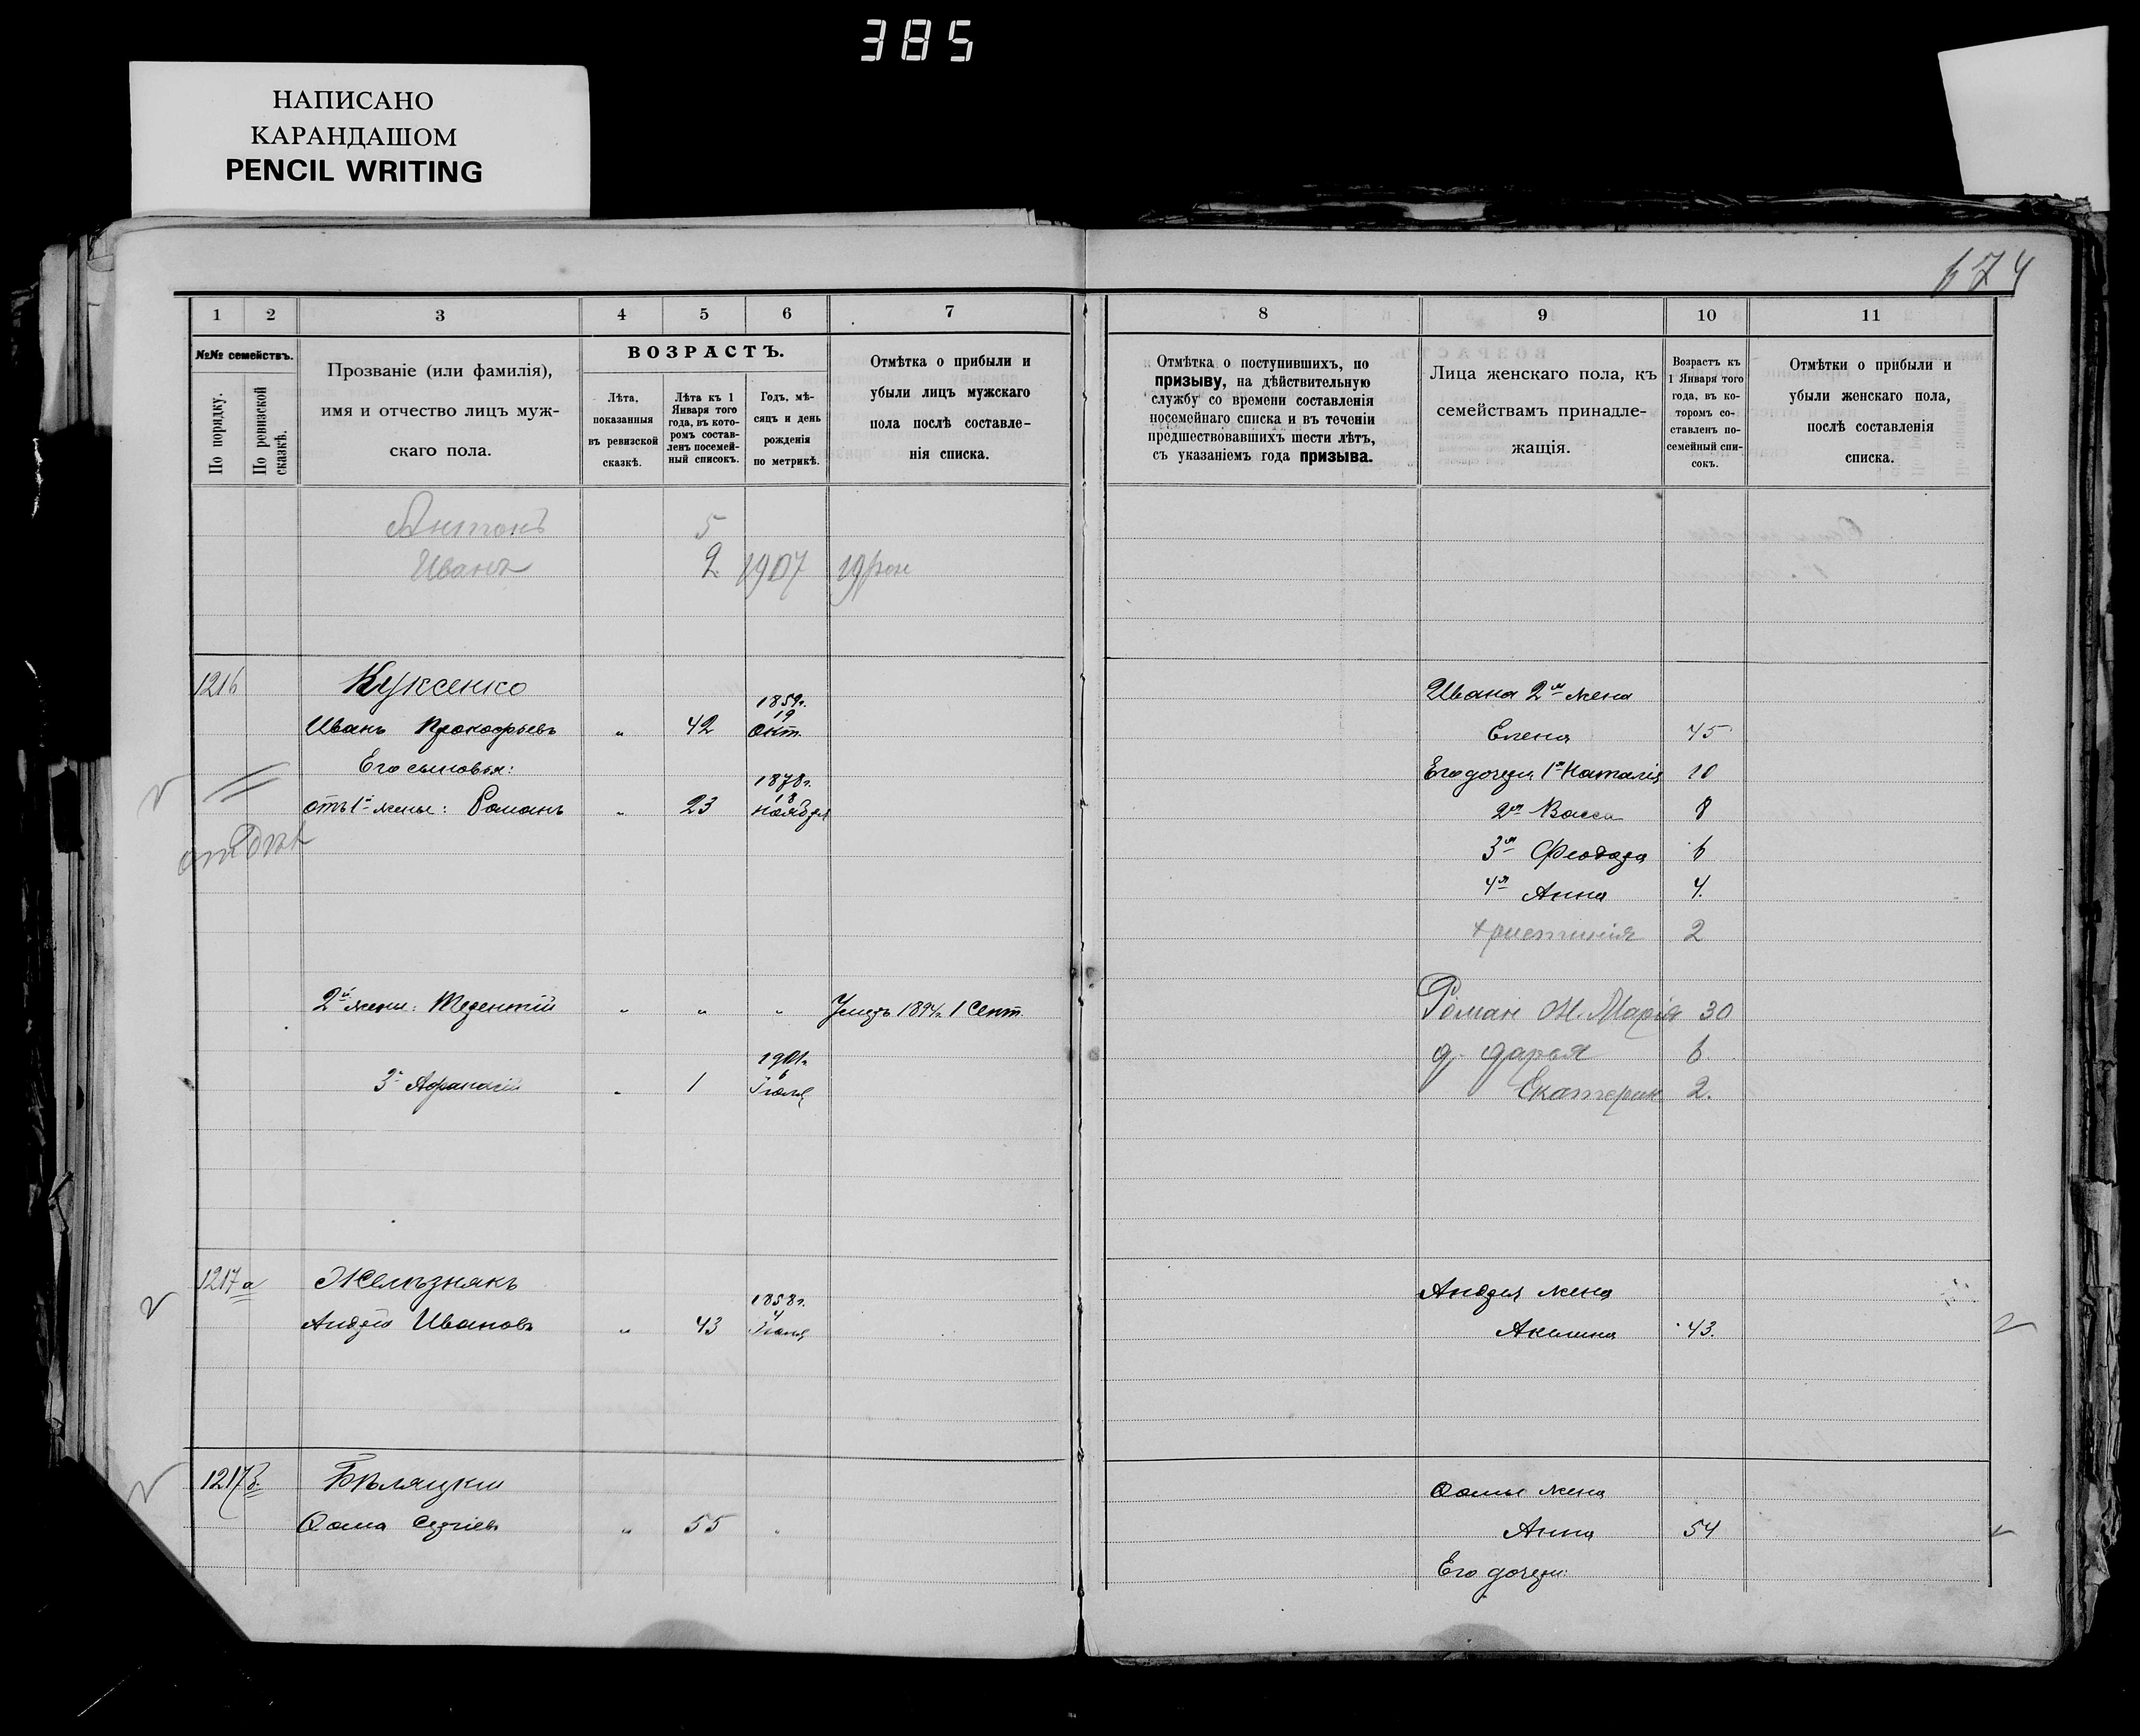 385
НАПИСАНО
КАРАНДАШОМ
PENCIL WRITING
674
1
2
3
4
5
6
7
8
9
10
11
№№ семействъ.
По порядку.
По ревизской сказкѣ.
Прозваніе (или фамилія),
имя и отчество лицъ муж-
скаго пола.
ВОЗРАСТЪ.
Лѣта,
показанныя
въ ревизской
сказкѣ.
Лѣта къ 1
Января того
года, въ кото-
ромъ состав-
ленъ посемей-
ный списокъ.
Годъ, мѣ-
сяцъ и день
рожденія
по метрикѣ.
Отмѣтка о прибыли и
убыли лицъ мужскаго
пола послѣ составле-
нія списка.
Отмѣтка о поступившихъ, по
призыву, на дѣйствительную
службу со времени составленія
посемейнаго списка и въ теченіи
предшествовавшихъ шести лѣтъ,
съ указаніемъ года призыва.
Лица женскаго пола, къ
семействамъ принадле-
жащія.
Возрастъ къ
1 Января того
года, въ ко-
торомъ со-
ставленъ по-
семейный спи-
сокъ.
Отмѣтки о прибыли и
убыли женскаго пола,
послѣ составленія
списка.
Антонъ 5
Иванъ 2 1907
1216 Куксенко
Ивана 2я жена
1859г.
19
Иванъ Прокофьевъ " 42 Окт.
Елена 45
Его сыновья:
Его дочери 1я Наталія 10
1878г.
18
отъ 1й жены: Романъ " 23 Ноября
2я Васса 8
3я Феодора 6
4я Анна 4.
Христинія 2
2й жены: Терентій " " " Умеръ 1894г. 1 Сент.
Роман Ж. Марія 30
1901г.
6
3й Афанасій " 1 Іюля
д. Дарья 6.
Екатерин 2.
1217а Желѣзнякъ
Андрея жена
1858г.
4
Андрей Ивановъ " 43
Акилина 43.
1217б. Бѣляцкій
Ѳомы жена
Ѳома Сергіевъ " 55 "
Анна 54
Его дочери: